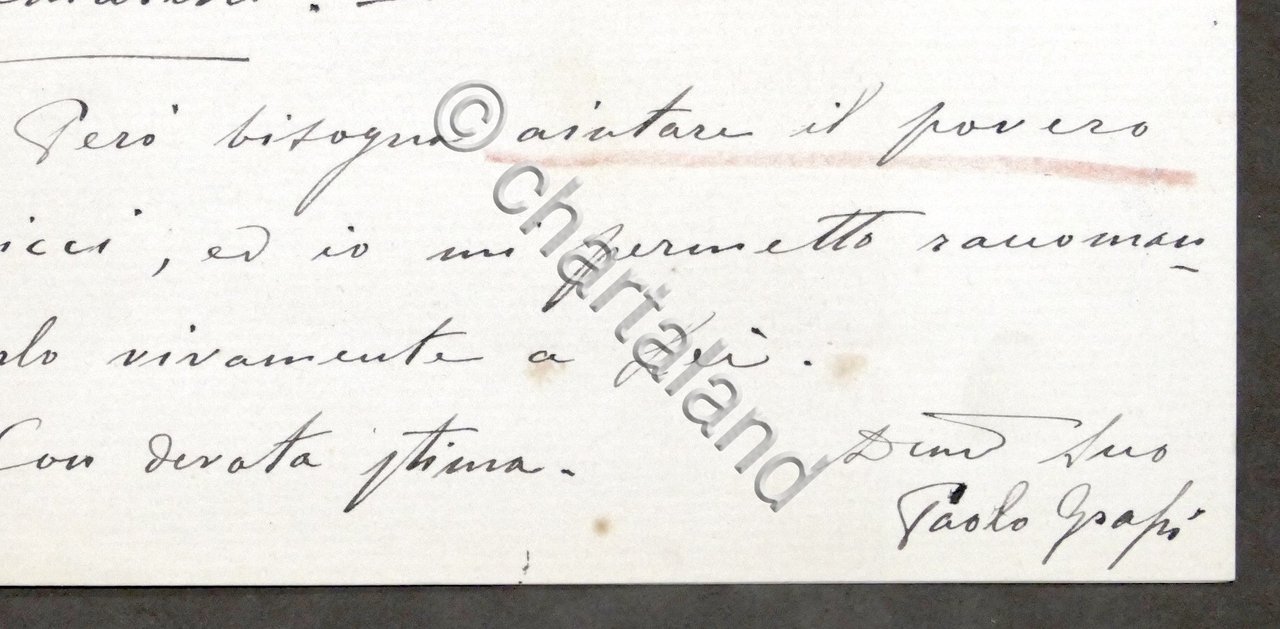 Però bisogna aiutare il povero
icci, ed io mi permetto raccoman-
rlo vivamente a Lei.
Con devota stima.
Suo
Paolo
© chartaland